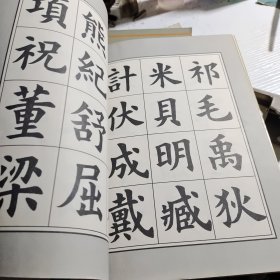 祁毛禹狄
米貝明臧
計伏成戴
熊紀舒屈
項祝董梁